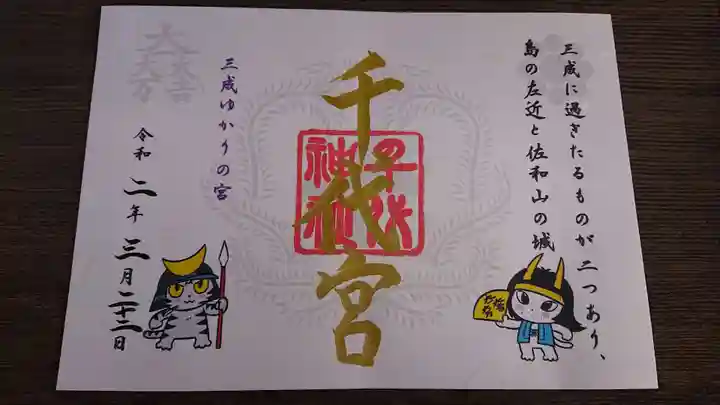 三成に過ぎたるものが二つあり、
島の左近と佐和山の城
千代宮
千代
神社
三成ゆかりの宮
大一大万
大吉
令和二年三月二十二日